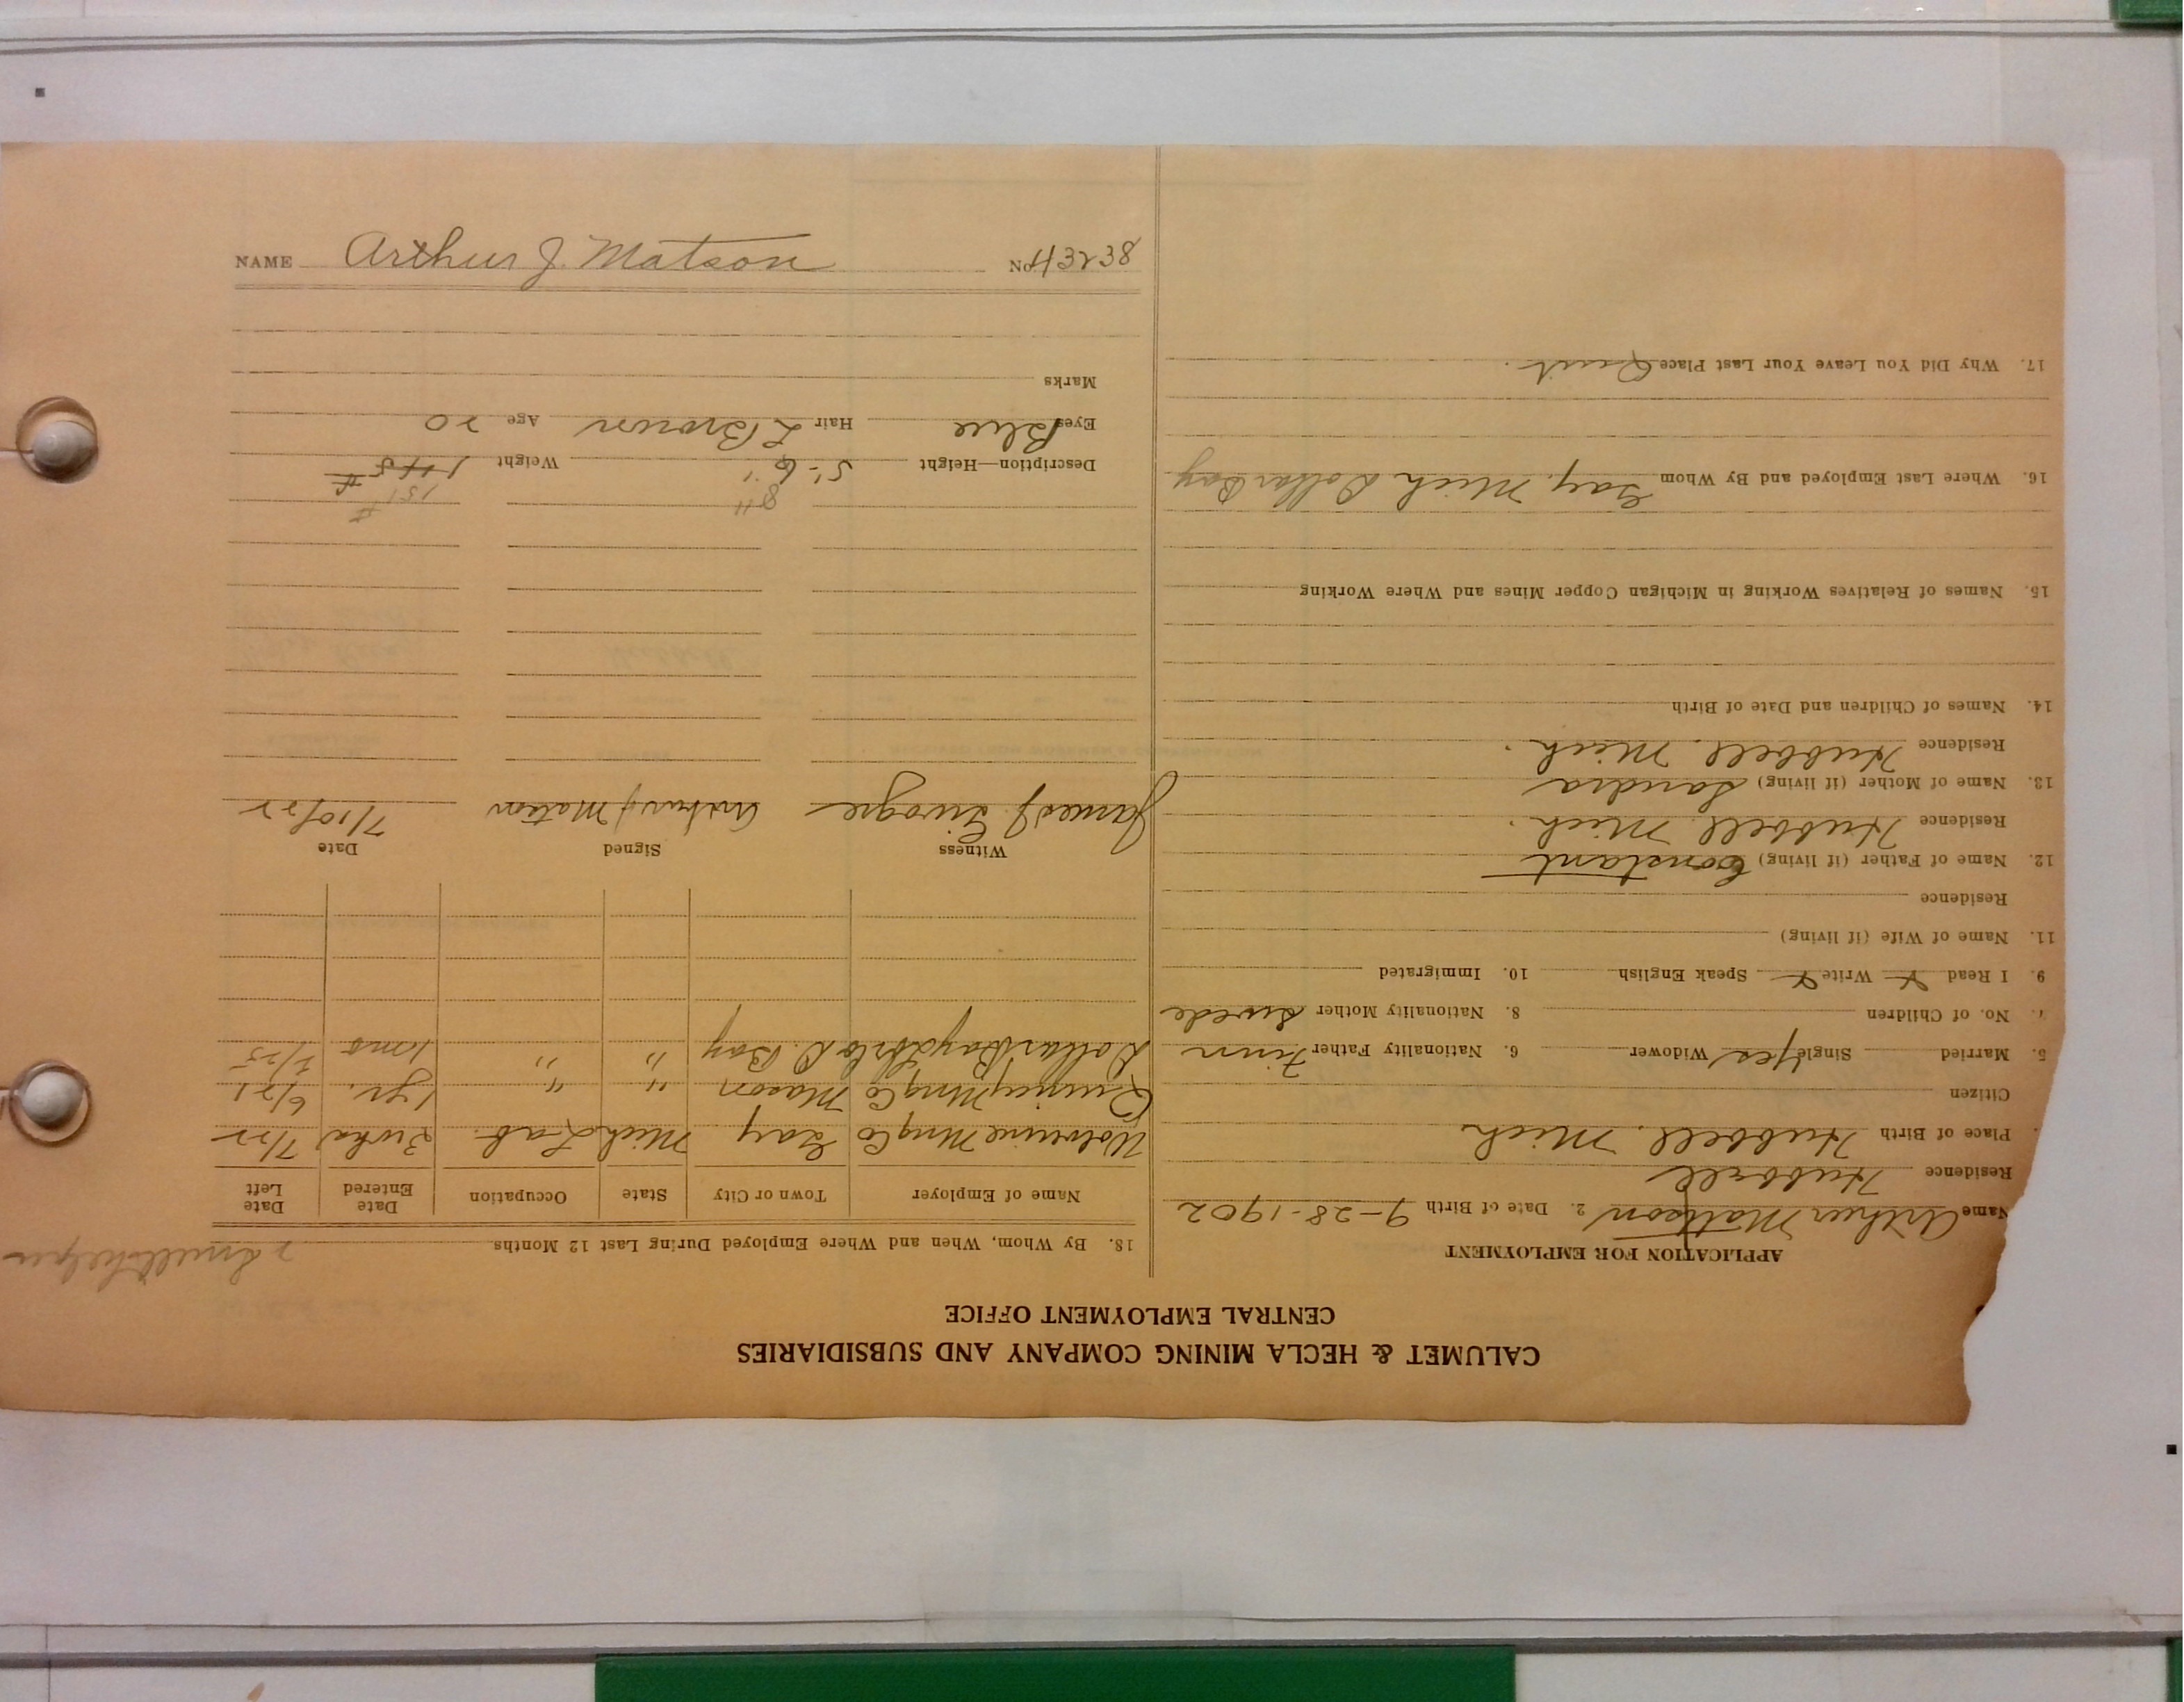 CALUMET & HECLA MINING COMPANY AND SUBSIDIARIES
CENTRAL EMPLOYMENT OFFICE
APPLICATION FOR EMPLOYMENT
Name Arthur Mattson 2. Date of Birth 9-28-1902
Residence Hubbell
Place of Birth Hubbell. Mich
Citizen
5. Married Single Yes Widower 6. Nationality Father Finn
7. No. of Children 8. Nationality Mother Swede
9. I Read Y Write Y Speak English 10. Immigrated
11. Name of Wife (if living)
Residence
12. Name of Father (if living) Constant
Residence Hubbell. Mich.
13. Name of Mother (if living) Sandra
Residence Hubbell. Mich.
14. Names of Children and Date of Birth
15. Names of Relatives Working in Michigan Copper Mines and Where Working
16. Where Last Employed and By Whom Gay. Mich Dollar Bay
17. Why Did You Leave Your Last Place Quit.
18. By Whom, When and Where Employed During Last 12 Months
Name of Employer Town or City State Occupation Date Entered Date Left
Wolverine Mng Co Gay Mich Lab. 3 wks 7/22
Quincy Mng Co Mason " " 1 yr. 6/21
Dollar Bay D. Bay " " 1 mo
Witness Signed Date
James J. Arthur J Matson 7/10/22
8" 151 #
Description—Height 5'-6" Weight 145 #
Eyes Blue Hair L Brown Age 20
Marks
NAME Arthur J. Matson No. 43238